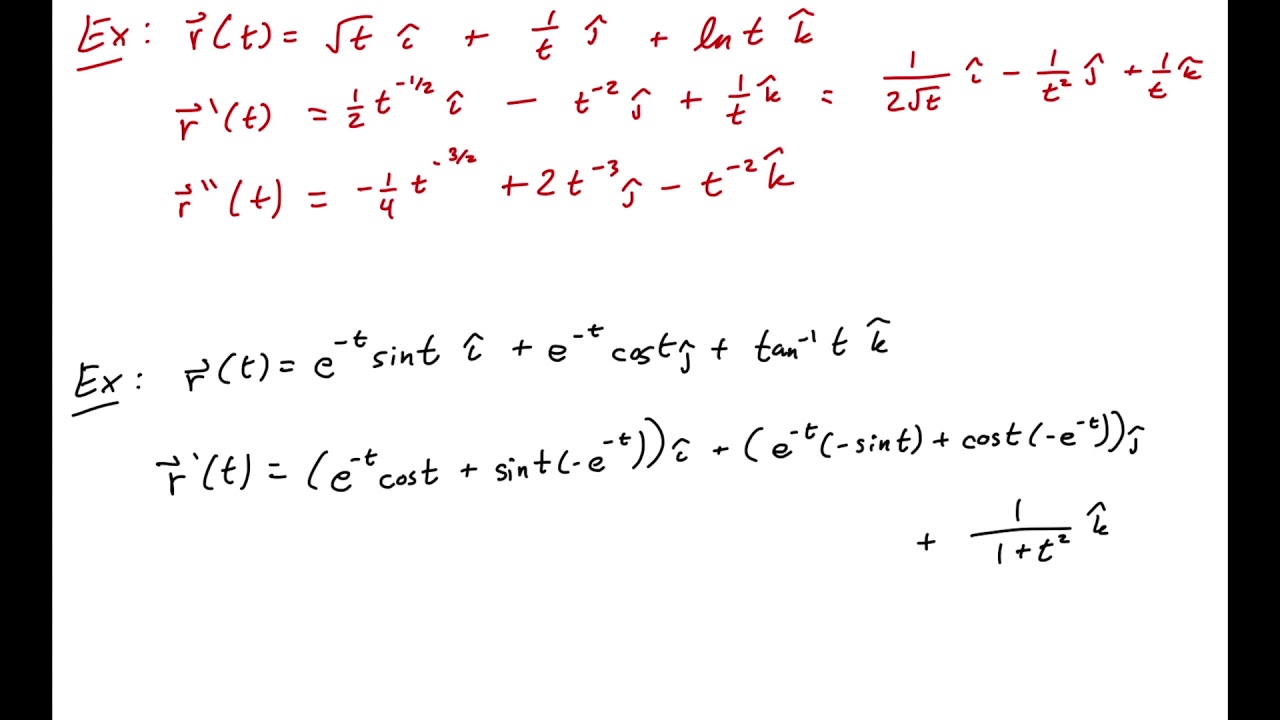 Ex: r⃗(t) = √t î + 1/t ĵ + ln t k̂
r⃗'(t) = 1/2 t^(-1/2) î - t^(-2) ĵ + 1/t k̂ = 1/(2√t) î - 1/t² ĵ + 1/t k̂
r⃗''(t) = -1/4 t^(-3/2) + 2t^(-3) ĵ - t^(-2) k̂
Ex: r⃗(t) = e^(-t) sin t î + e^(-t) cos t ĵ + tan^(-1) t k̂
r⃗'(t) = (e^(-t) cos t + sin t(-e^(-t))) î + (e^(-t)(-sin t) + cos t(-e^(-t))) ĵ
+ 1/(1+t²) k̂